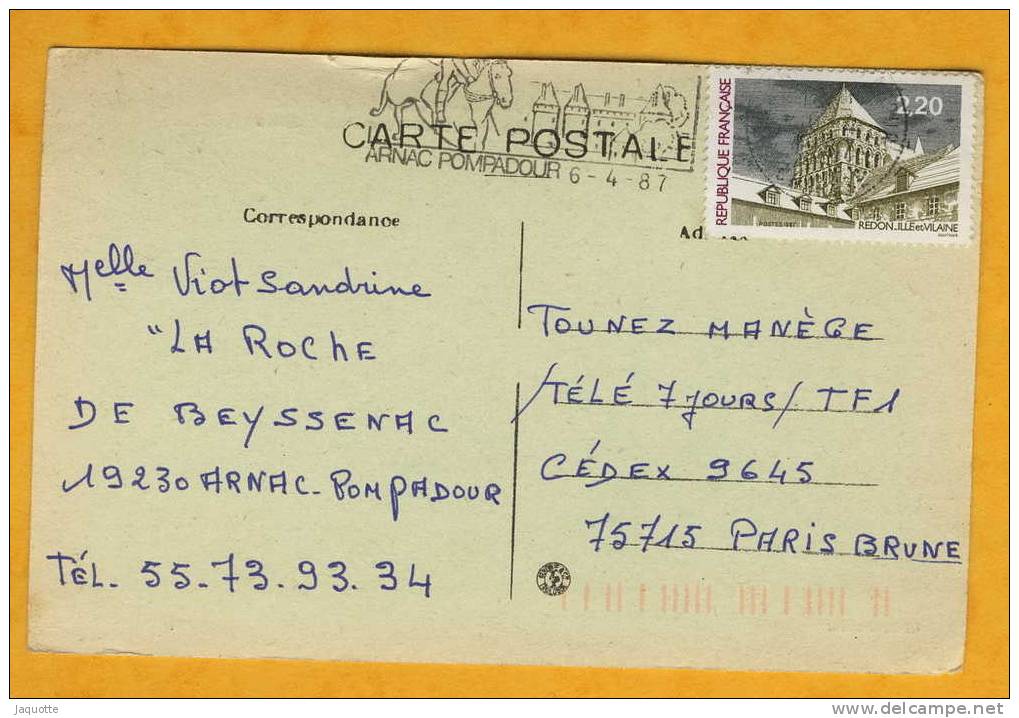 CARTE POSTALE
ARNAC POMPADOUR 6-4-87
REPUBLIQUE FRANÇAISE
2,20
REDON_ILLE et VILAINE
Correspondance
Melle Viot Sandrine
"LA ROCHE
DE BEYSSENAC
19230 ARNAC-POMPADOUR
TÉL. 55-73.93.34
TOUNEZ MANÈGE
/TÉLÉ 7 JOURS/ TF1
CÉDEX 9645
75715 PARIS BRUNE
Jaquotte
www.delcampe.net